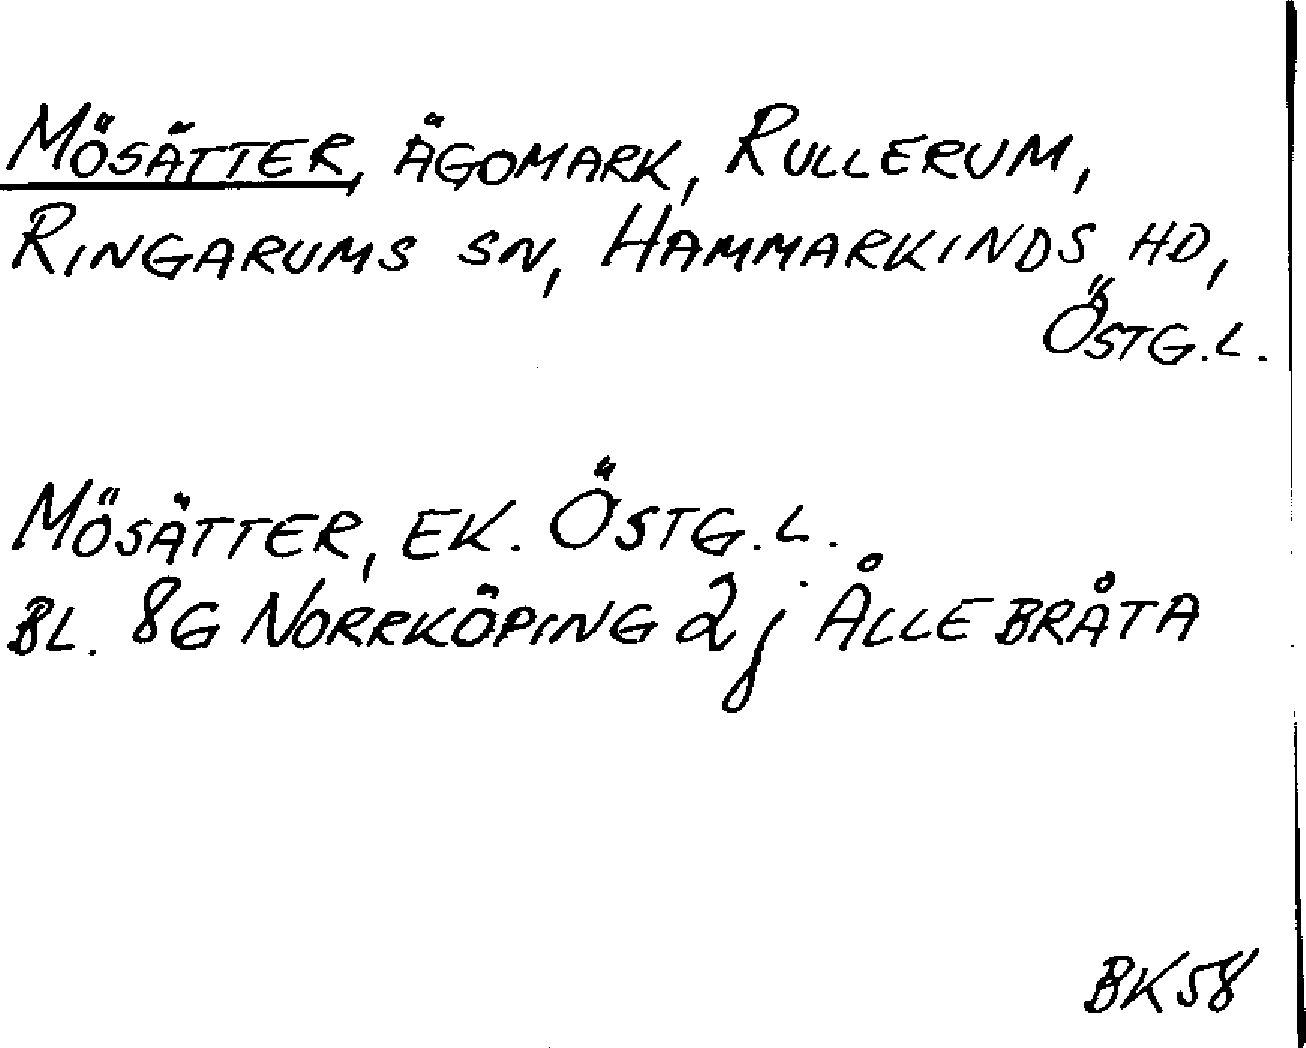 MÖSÄTTER, ÄGOMARK, RULLERUM,
RINGARUMS SN, HAMMARKINDS HD,
ÖSTG.L.
MÖSÄTTER, EK. ÖSTG.L.
BL. 8G NORRKÖPING 2j ÅLLEBRÅTA
BK58